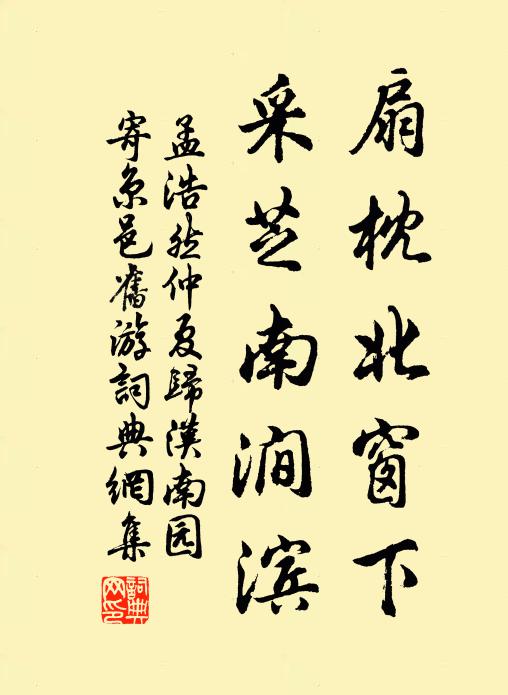 扇枕北窗下
采芝南涧滨
孟浩然仲夏歸漢南园
寄京邑舊游詞典網集
詞典
网印